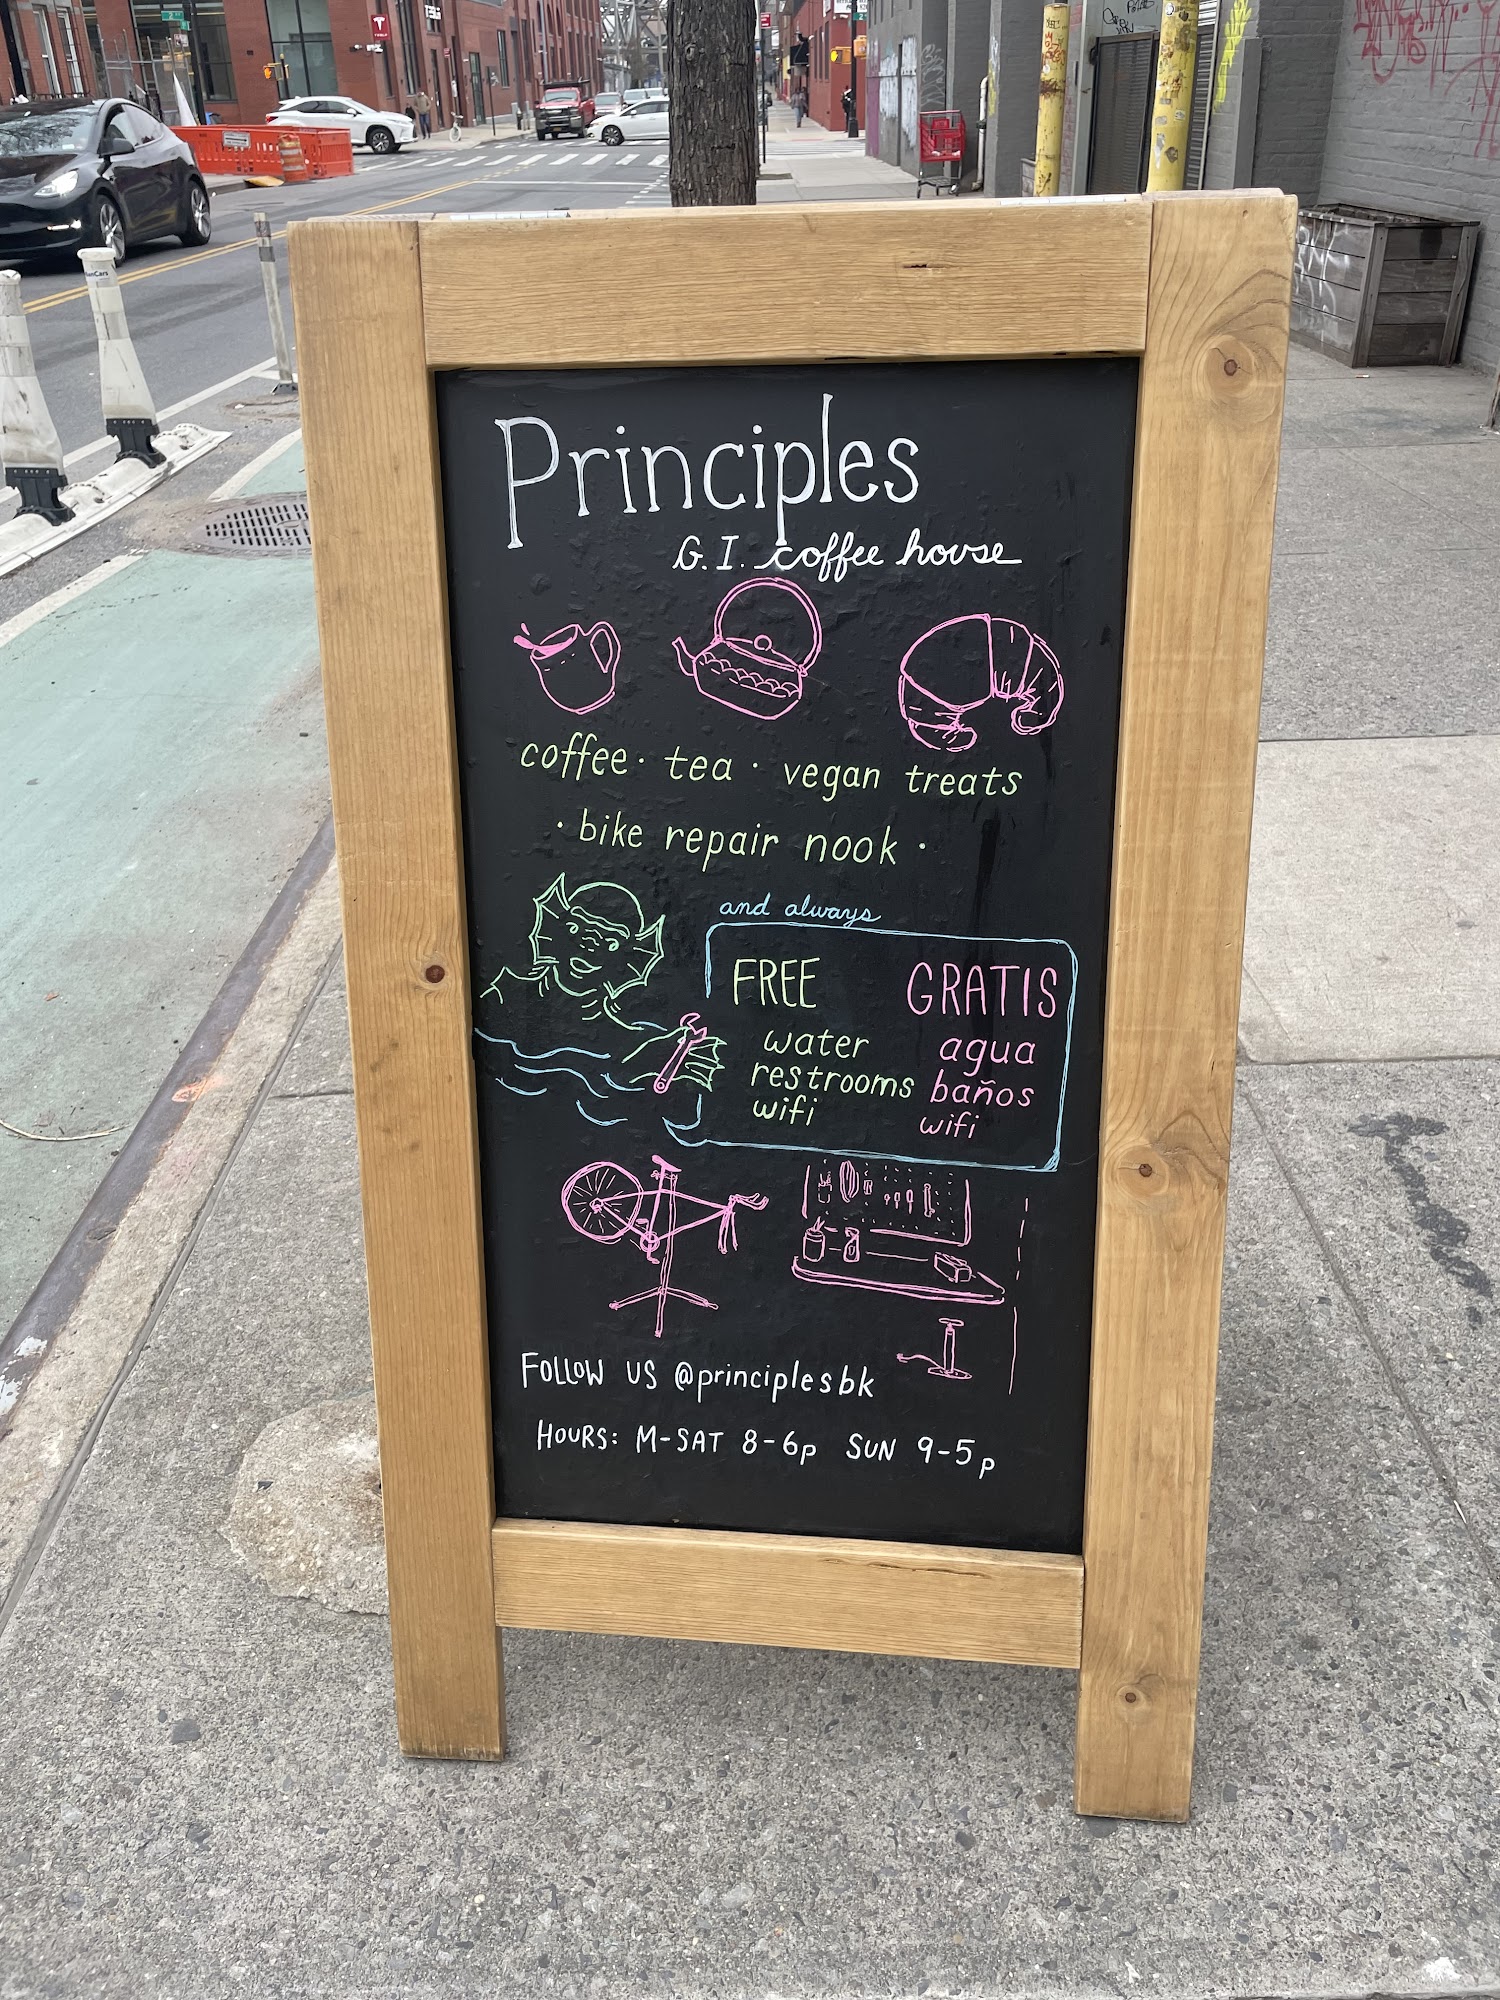 TESLA
Principles
G.I. coffee house
coffee · tea · vegan treats
· bike repair nook ·
and always
FREE
water
restrooms
wifi
GRATIS
agua
baños
wifi
FOLLOW US @principlesbk
HOURS: M-SAT 8-6p SUN 9-5p